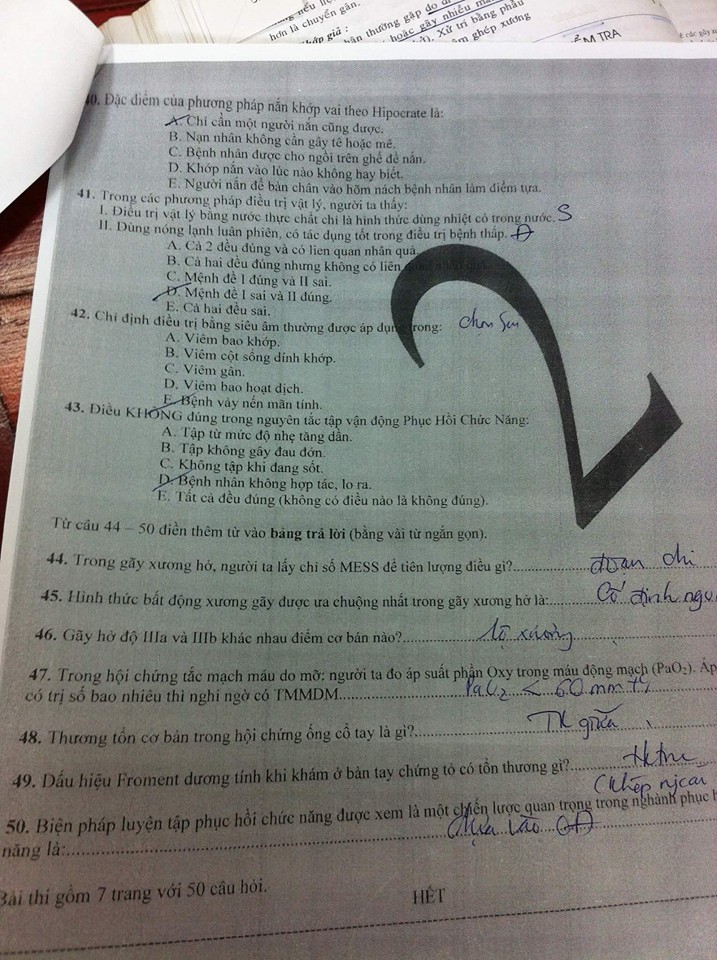 hơn là chuyển gân.
hoặc gây nhiều
Xử trí bằng phẫu
ghép xương
40. Đặc điểm của phương pháp nắn khớp vai theo Hipocrate là:
A. Chỉ cần một người nắn cũng được.
B. Nạn nhân không cần gây tê hoặc mê.
C. Bệnh nhân được cho ngồi trên ghế để nắn.
D. Khớp nắn vào lúc nào không hay biết.
E. Người nắn để bàn chân vào hõm nách bệnh nhân làm điểm tựa.
41. Trong các phương pháp điều trị vật lý, người ta thấy:
I. Điều trị vật lý bằng nước thực chất chỉ là hình thức dùng nhiệt có trong nước. S
II. Dùng nóng lạnh luân phiên, có tác dụng tốt trong điều trị bệnh thấp. Đ
A. Cả 2 đều đúng và có liên quan nhân quả.
B. Cả hai đều đúng nhưng không có liên
C. Mệnh đề I đúng và II sai.
D. Mệnh đề I sai và II đúng.
E. Cả hai đều sai.
42. Chỉ định điều trị bằng siêu âm thường được áp dụng trong: chọn Sai
A. Viêm bao khớp.
B. Viêm cột sống dính khớp.
C. Viêm gân.
D. Viêm bao hoạt dịch.
E. Bệnh vảy nến mãn tính.
43. Điều KHÔNG đúng trong nguyên tắc tập vận động Phục Hồi Chức Năng:
A. Tập từ mức độ nhẹ tăng dần.
B. Tập không gây đau đớn.
C. Không tập khi đang sốt.
D. Bệnh nhân không hợp tác, lo ra.
E. Tất cả đều đúng (không có điều nào là không đúng).
Từ câu 44 – 50 điền thêm từ vào bảng trả lời (bằng vài từ ngắn gọn).
44. Trong gãy xương hở, người ta lấy chỉ số MESS để tiên lượng điều gì?.......... đoạn chi
45. Hình thức bất động xương gãy được ưa chuộng nhất trong gãy xương hở là:....... Cố định
46. Gãy hở độ IIIa và IIIb khác nhau điểm cơ bản nào?.......... lộ xương
47. Trong hội chứng tắc mạch máu do mỡ: người ta đo áp suất phần Oxy trong máu động mạch (PaO₂). Áp
có trị số bao nhiêu thì nghi ngờ có TMMDM.......... PaO₂ < 60 mm Hg
48. Thương tổn cơ bản trong hội chứng ống cổ tay là gì?.......... TK giữa
49. Dấu hiệu Froment dương tính khi khám ở bàn tay chứng tỏ có tổn thương gì?..........
50. Biện pháp luyện tập phục hồi chức năng được xem là một chiến lược quan trọng trong nghành phục h
năng là:..........
Bài thi gồm 7 trang với 50 câu hỏi.
HẾT
2